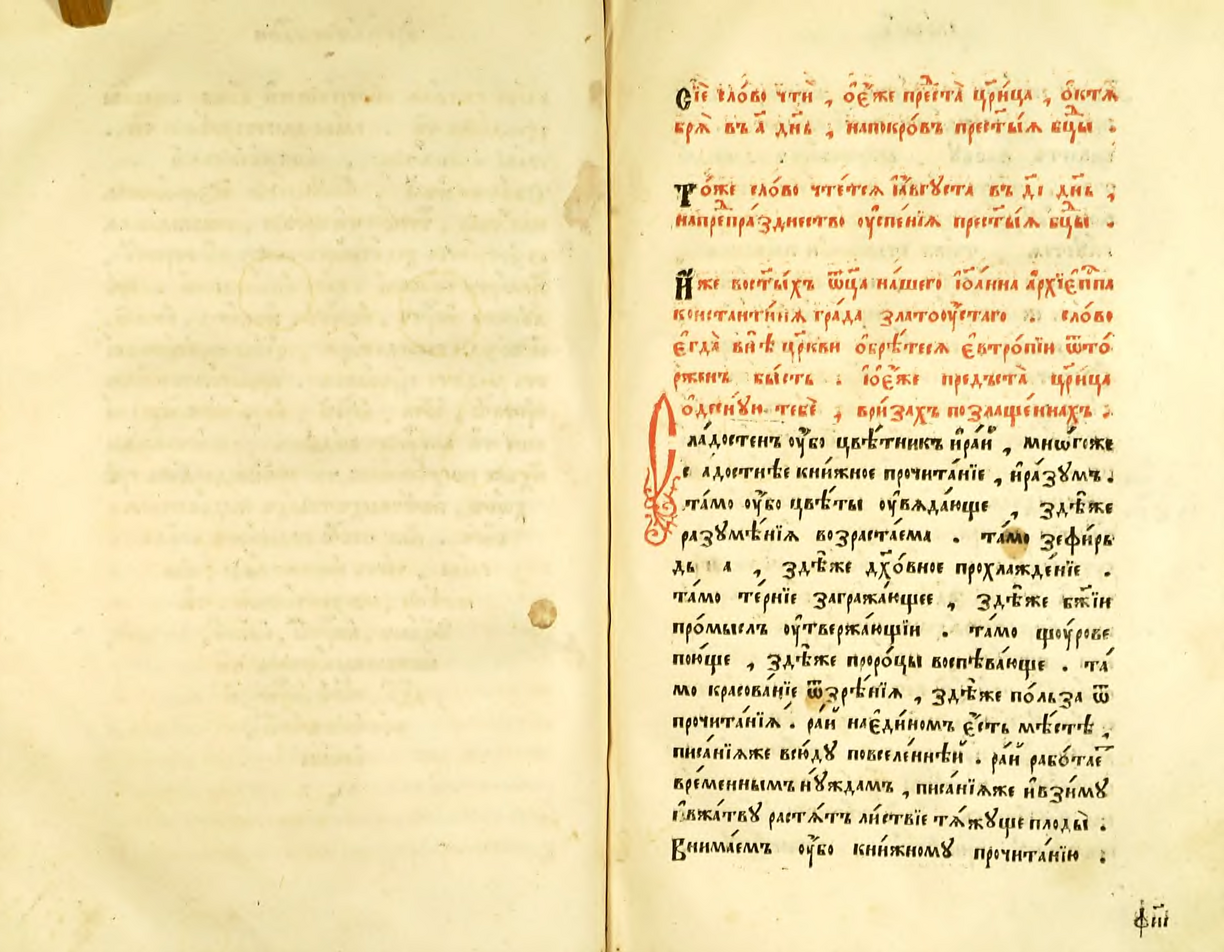 Сїѐ сло́во чтѝ , ѡ҆е́же преⷭ҇та̀ цр҃и́ца , ѻ҆ктѧ́
брѧ̀ въ а҃ дн҃ь , напокро́въ прест҃ы́ѧ бц҃ы .
То́же сло́во чте́тсѧ і҆а҆́вгꙋста въ д҃і дн҃ь ;
напреⷣпра́зднество ᲂу҆спе́нїѧ прест҃ы́ѧ бц҃ы .
И҆́же вост҃ы́хъ ѿц҃а на́шего і҆ѡ҆а́нна а҆рхїе҆п҃па
константи́нѧ гра́да златоᲂу́стаго . сло́во
є҆гда̀ внѣ̀ цр҃кви ѻ҆брѣ́тесѧ є҆втро́пїи ѿто́
рженъ бы́сть . і҆ѻ҆є҆́же предъста̀ цр҃и́ца
ѻ҆десну́ю тебѐ ,ври́захъ позлаще́ннахъ ;
Сла́достенъ ᲂу҆́бо цвѣ́тникъ и҆ра́й , мно́гоже
с адостнѣе кни́жное прочита́нїе , и҆ра́зꙋмъ .
та́мо ᲂу҆́бо цвѣ́ты ᲂу҆вѧда́юще , здѣ́же
разꙋмѣ́нїѧ возраста́ема . та́мо зефи́ръ
ды а , здѣ́же дх҃о́вное прохлажде́нїе .
та́мо те́рнїе загражда́ющее , здѣ́же бж҃їи
про́мыслъ ᲂу҆твержа́ющїи . та́мо щоу́рове
пою́ще , здѣ́же проро́цы воспѣва́юще . та́
мо красова́нїе ѿзрѣ́нїѧ , здѣ́же по́льза ѿ
прочита́нїѧ . ра́й нае҆ди́номъ є҆́сть мѣ́стѣ ,
писа́нїѧже всю́дꙋ повселе́ннѣй . ра́й рабо́таеⷮ
вре́меннымъ нꙋ́ждамъ , писа́нїѧже и҆взи́мꙋ
и҆вжа́твꙋ растѧ́тъ ли́ствїе тѧ́жꙋще плоды̀ .
Внима́емъ ᲂу҆́бо кни́жномꙋ прочита́нїю :